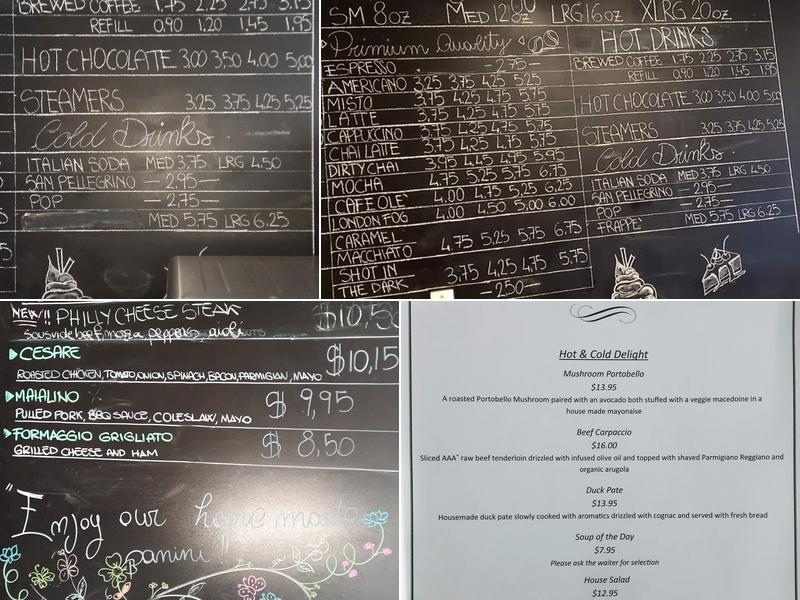 BREWED COFFEE 1.75 2.25 2.75 3.15
REFILL 0.90 1.20 1.45 1.95
HOT CHOCOLATE 3.00 3.50 4.00 5.00
STEAMERS 3.25 3.75 4.25 5.25
Cold Drinks
ITALIAN SODA MED 3.75 LRG 4.50
SAN PELLEGRINO — 2.95 —
POP — 2.75 —
MED 5.75 LRG 6.25
SM 8oz MED 12oz LRG 16oz XLRG 20oz
Primium Quality
ESPRESSO — 2.75 —
AMERICANO 3.25 3.75 4.25 5.25
MISTO 3.75 4.25 4.75 5.75
LATTE 3.75 4.25 4.75 5.75
CAPPUCINO 3.75 4.25 4.75 5.75
CHAI LATTE 3.75 4.25 4.75 5.75
DIRTY CHAI 3.95 4.45 4.75 5.95
MOCHA 4.75 5.25 5.75 6.75
CAFE OLE' 4.00 4.75 5.25 6.25
LONDON FOG 4.00 4.50 5.00 6.00
CARAMEL
MACCHIATO 4.75 5.25 5.75 6.75
SHOT IN 3.75 4.25 4.75 5.75
THE DARK — 2.50 —
HOT DRINKS
BREWED COFFEE 1.75 2.25 2.75 3.15
REFILL 0.90 1.20 1.45 1.95
HOT CHOCOLATE 3.00 3.50 4.00 5.00
STEAMERS 3.25 3.75 4.25 5.25
Cold Drinks
ITALIAN SODA MED 3.75 LRG 4.50
SAN PELLEGRINO — 2.95 —
POP — 2.75 —
FRAPPE' MED 5.75 LRG 6.25
NEW!! PHILLY CHEESE STEAK $10,50
sousvide beef, mozza, peppers, aioli
CESARE $10,15
ROASTED CHICKEN, TOMATO, ONION, SPINACH, BACON, PARMIGIAN, MAYO
MAIALINO $9,95
PULLED PORK, BBQ SAUCE, COLESLAW, MAYO
FORMAGGIO GRIGLIATO $8,50
GRILLED CHEESE AND HAM
"Enjoy our home made
panini!!"
Hot & Cold Delight
Mushroom Portobello
$13.95
A roasted Portobello Mushroom paired with an avocado both stuffed with a veggie macedoine in a
house made mayonaise
Beef Carpaccio
$16.00
Sliced AAA" raw beef tenderloin drizzled with infused olive oil and topped with shaved Parmigiano Reggiano and
organic arugola
Duck Pate
$13.95
Housemade duck pate slowly cooked with aromatics drizzled with cognac and served with fresh bread
Soup of the Day
$7.95
Please ask the waiter for selection
House Salad
$12.95